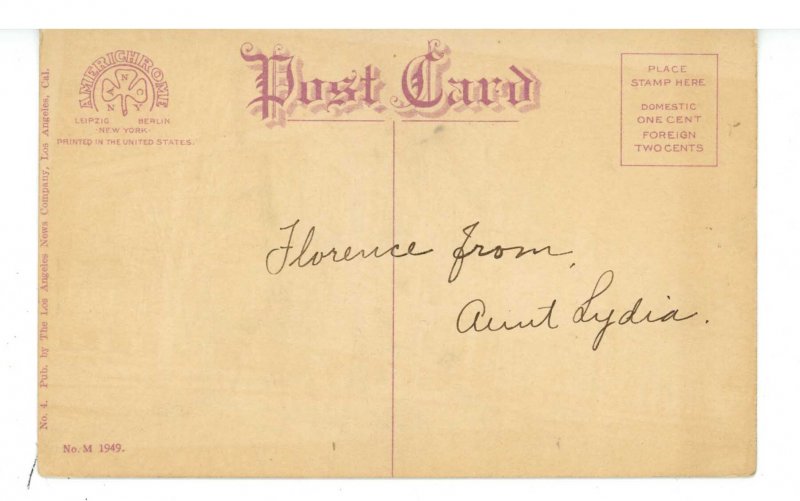 AMERICHROME
A N C
N Y
LEIPZIG BERLIN
NEW YORK
PRINTED IN THE UNITED STATES.
Post Card
PLACE
STAMP HERE
DOMESTIC
ONE CENT
FOREIGN
TWO CENTS
No. 4. Pub. by The Los Angeles News Company, Los Angeles, Cal.
Florence from
Aunt Lydia.
No. M 1949.